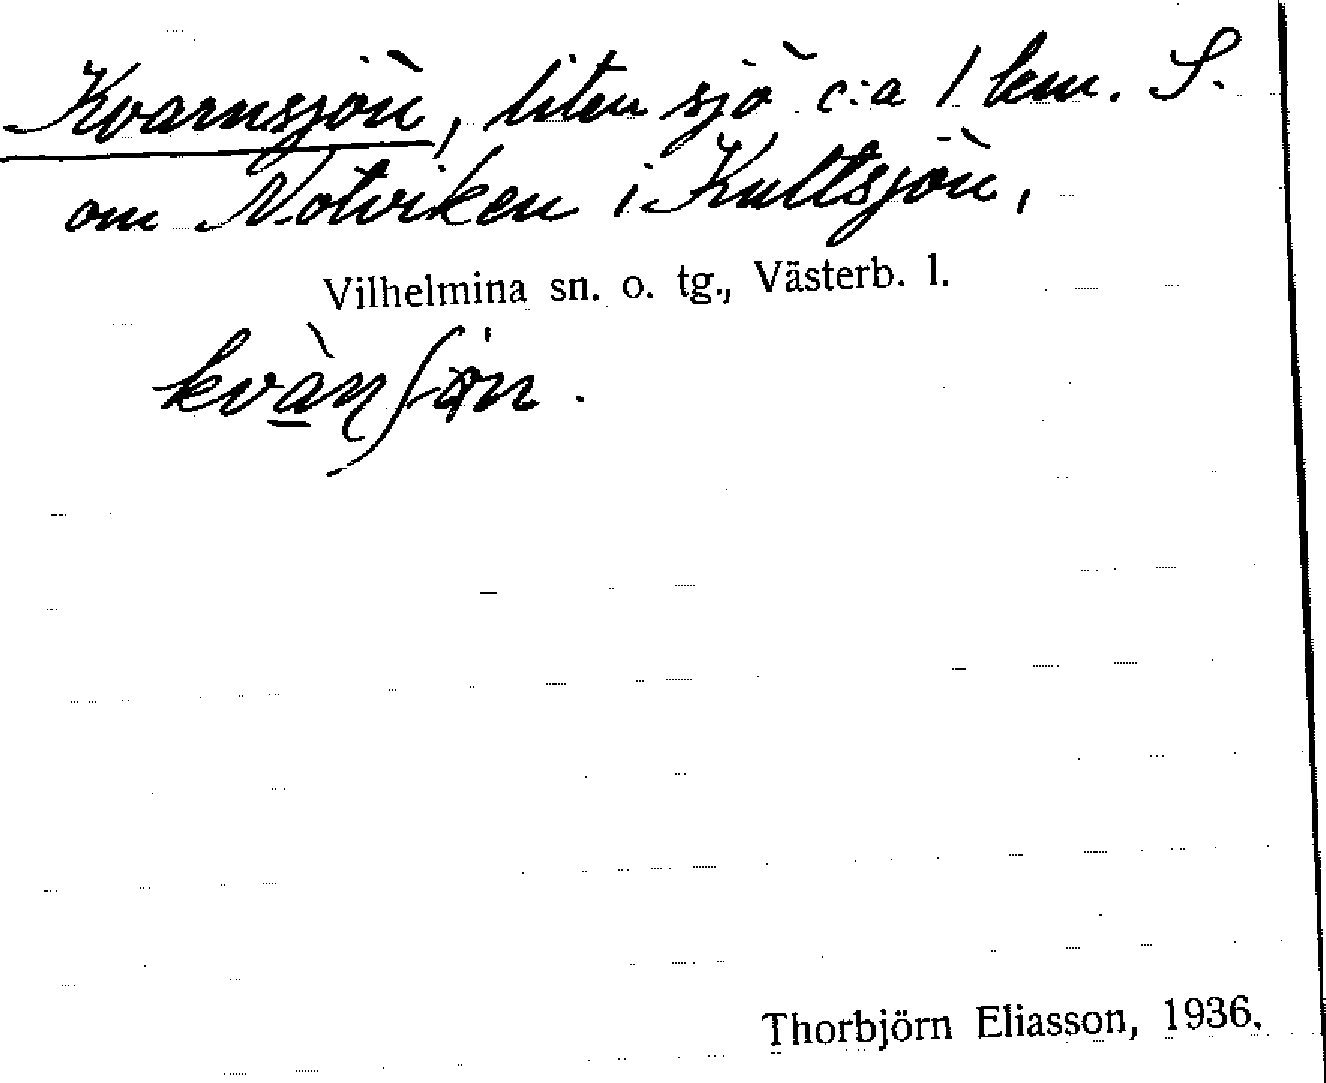 Kvarnsjön, liten sjö c:a 1 km. S.
om Notviken i Kultsjön,
Vilhelmina sn. o. tg., Västerb. l.
kvànʃön.
Thorbjörn Eliasson, 1936.